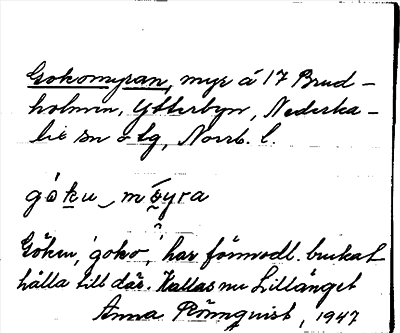 Gokomyran, myr å 17 Brud-
holmen, Ytterbyn, Nederka-
lix sn o tg, Norrb. l.
góku mǫ́yra
Göken, 'goko', har förmodl. brukat
hålla till där. Kallas nu Lillänget
Anna Rönnquist, 1947